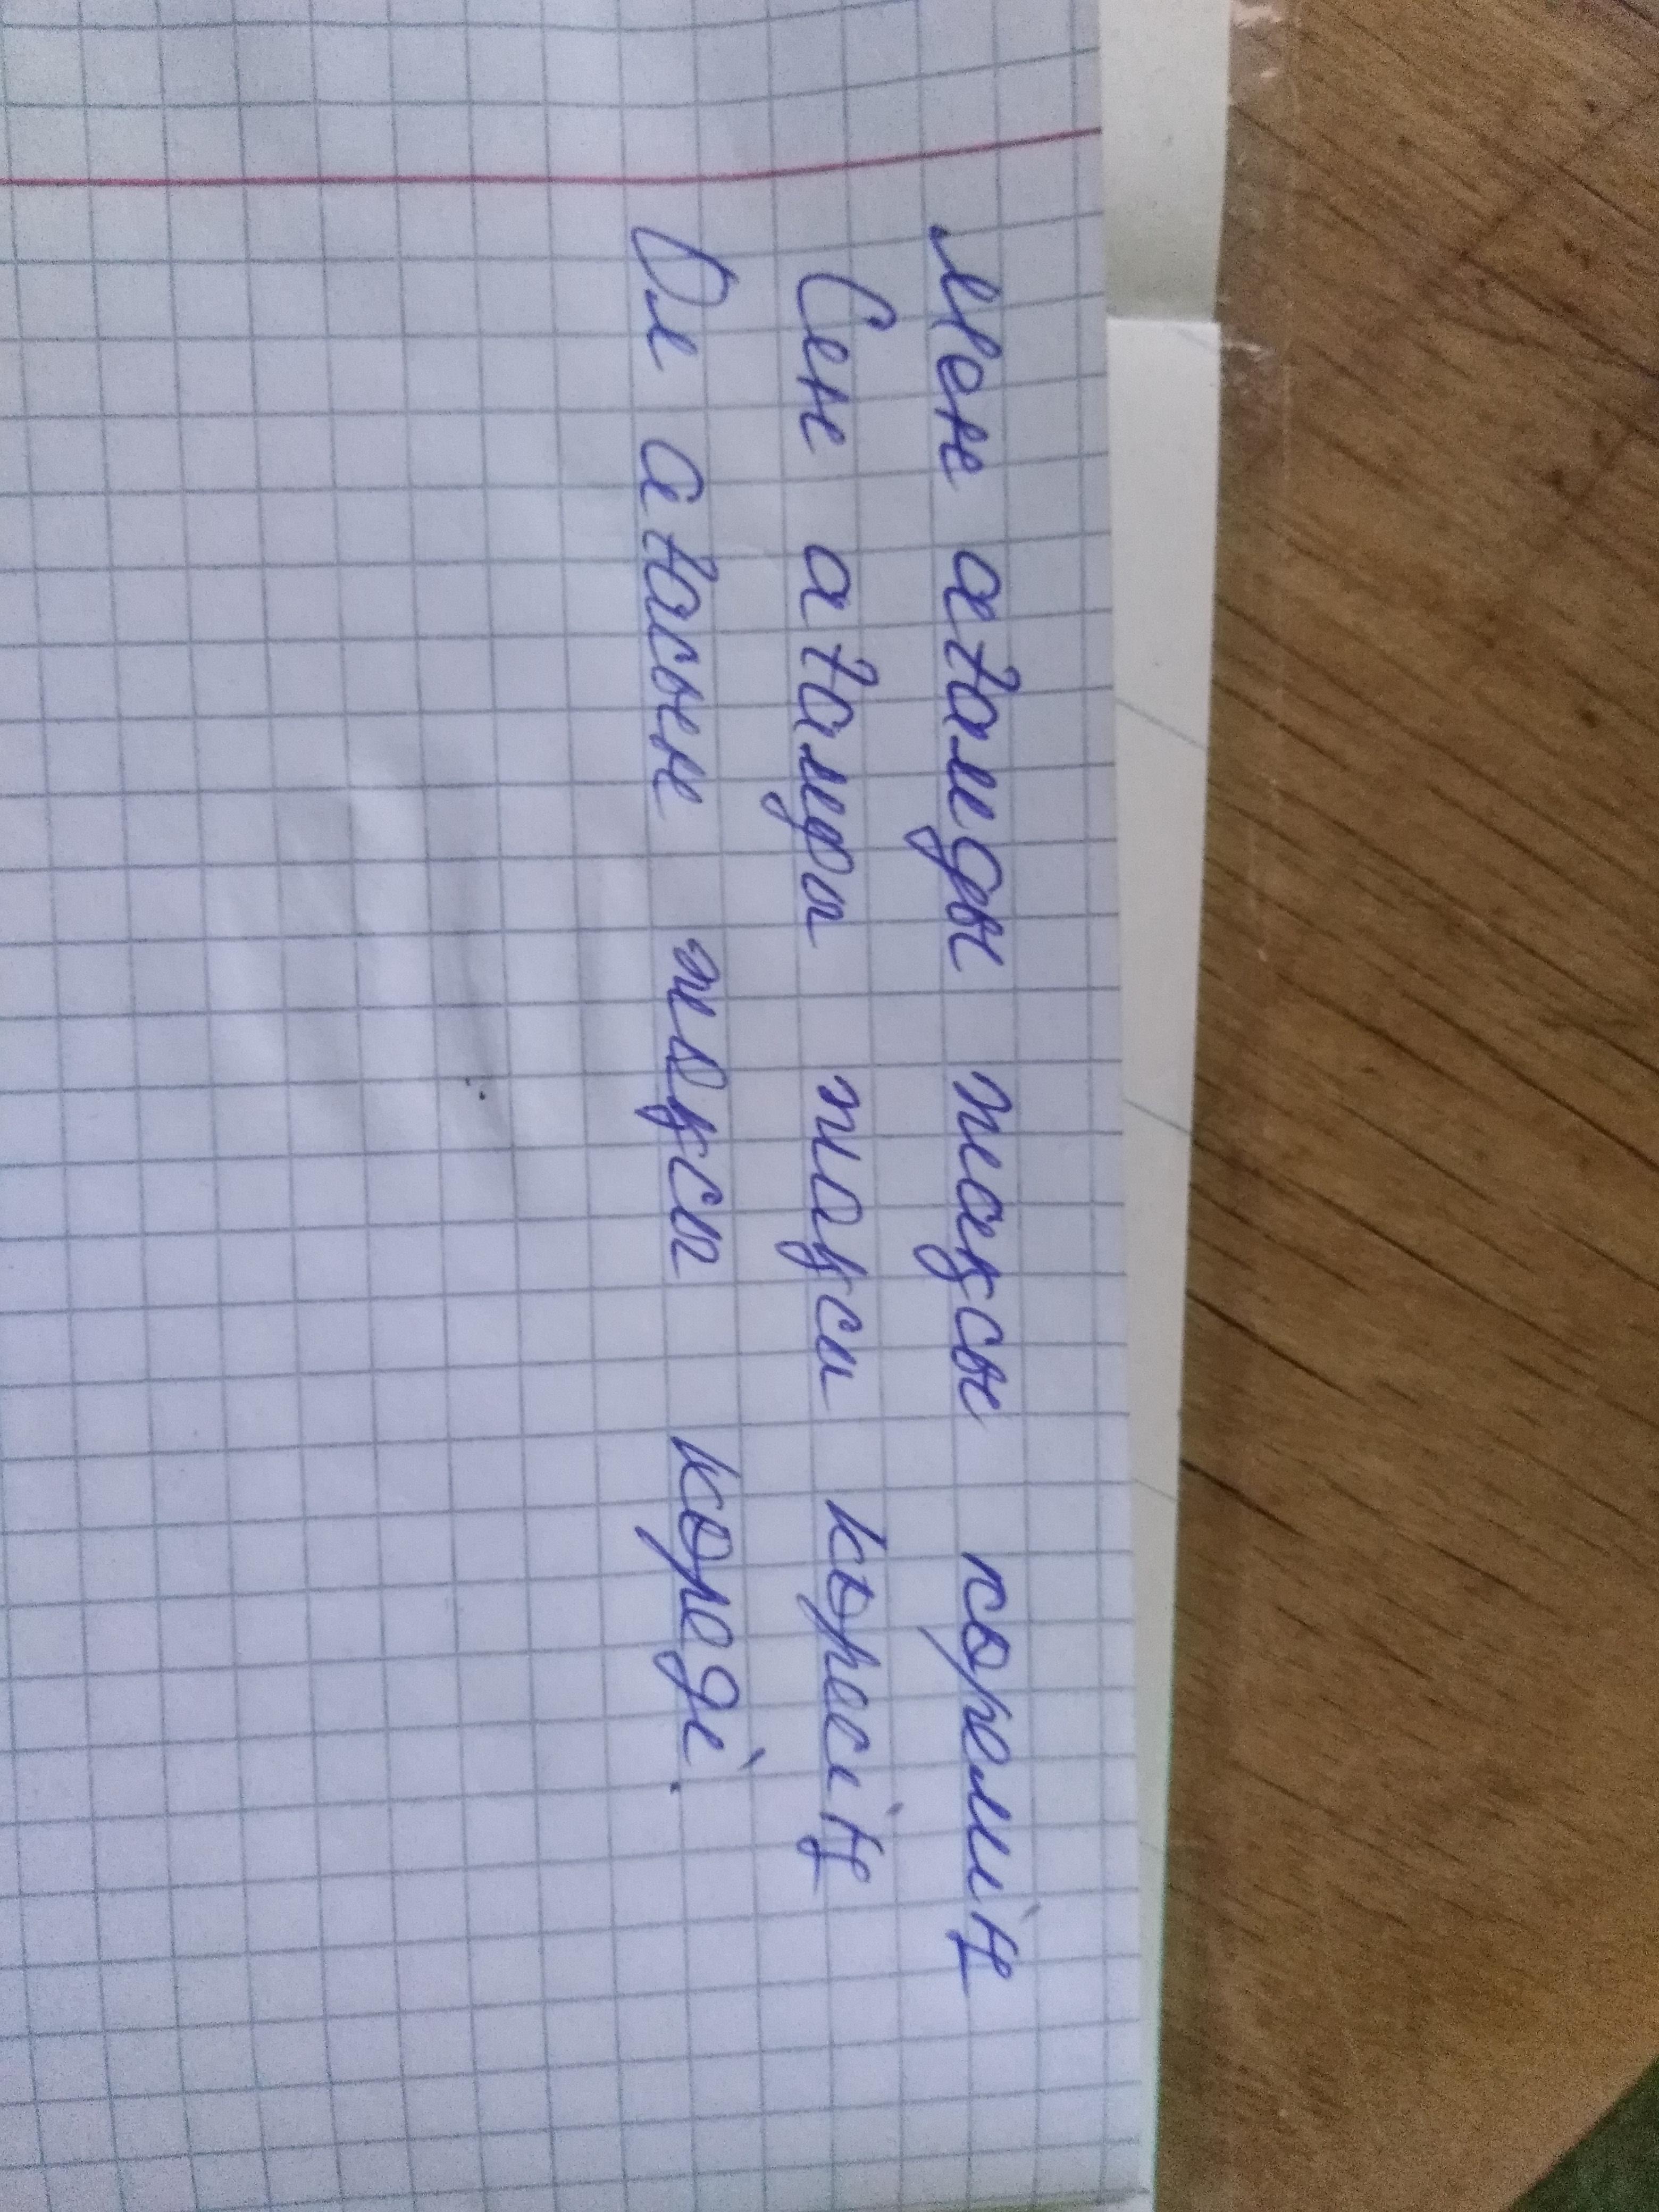 Мен атамды жақсы көремің
Сен атамды жақсы көресің
Ол атасын жақсы көреді.